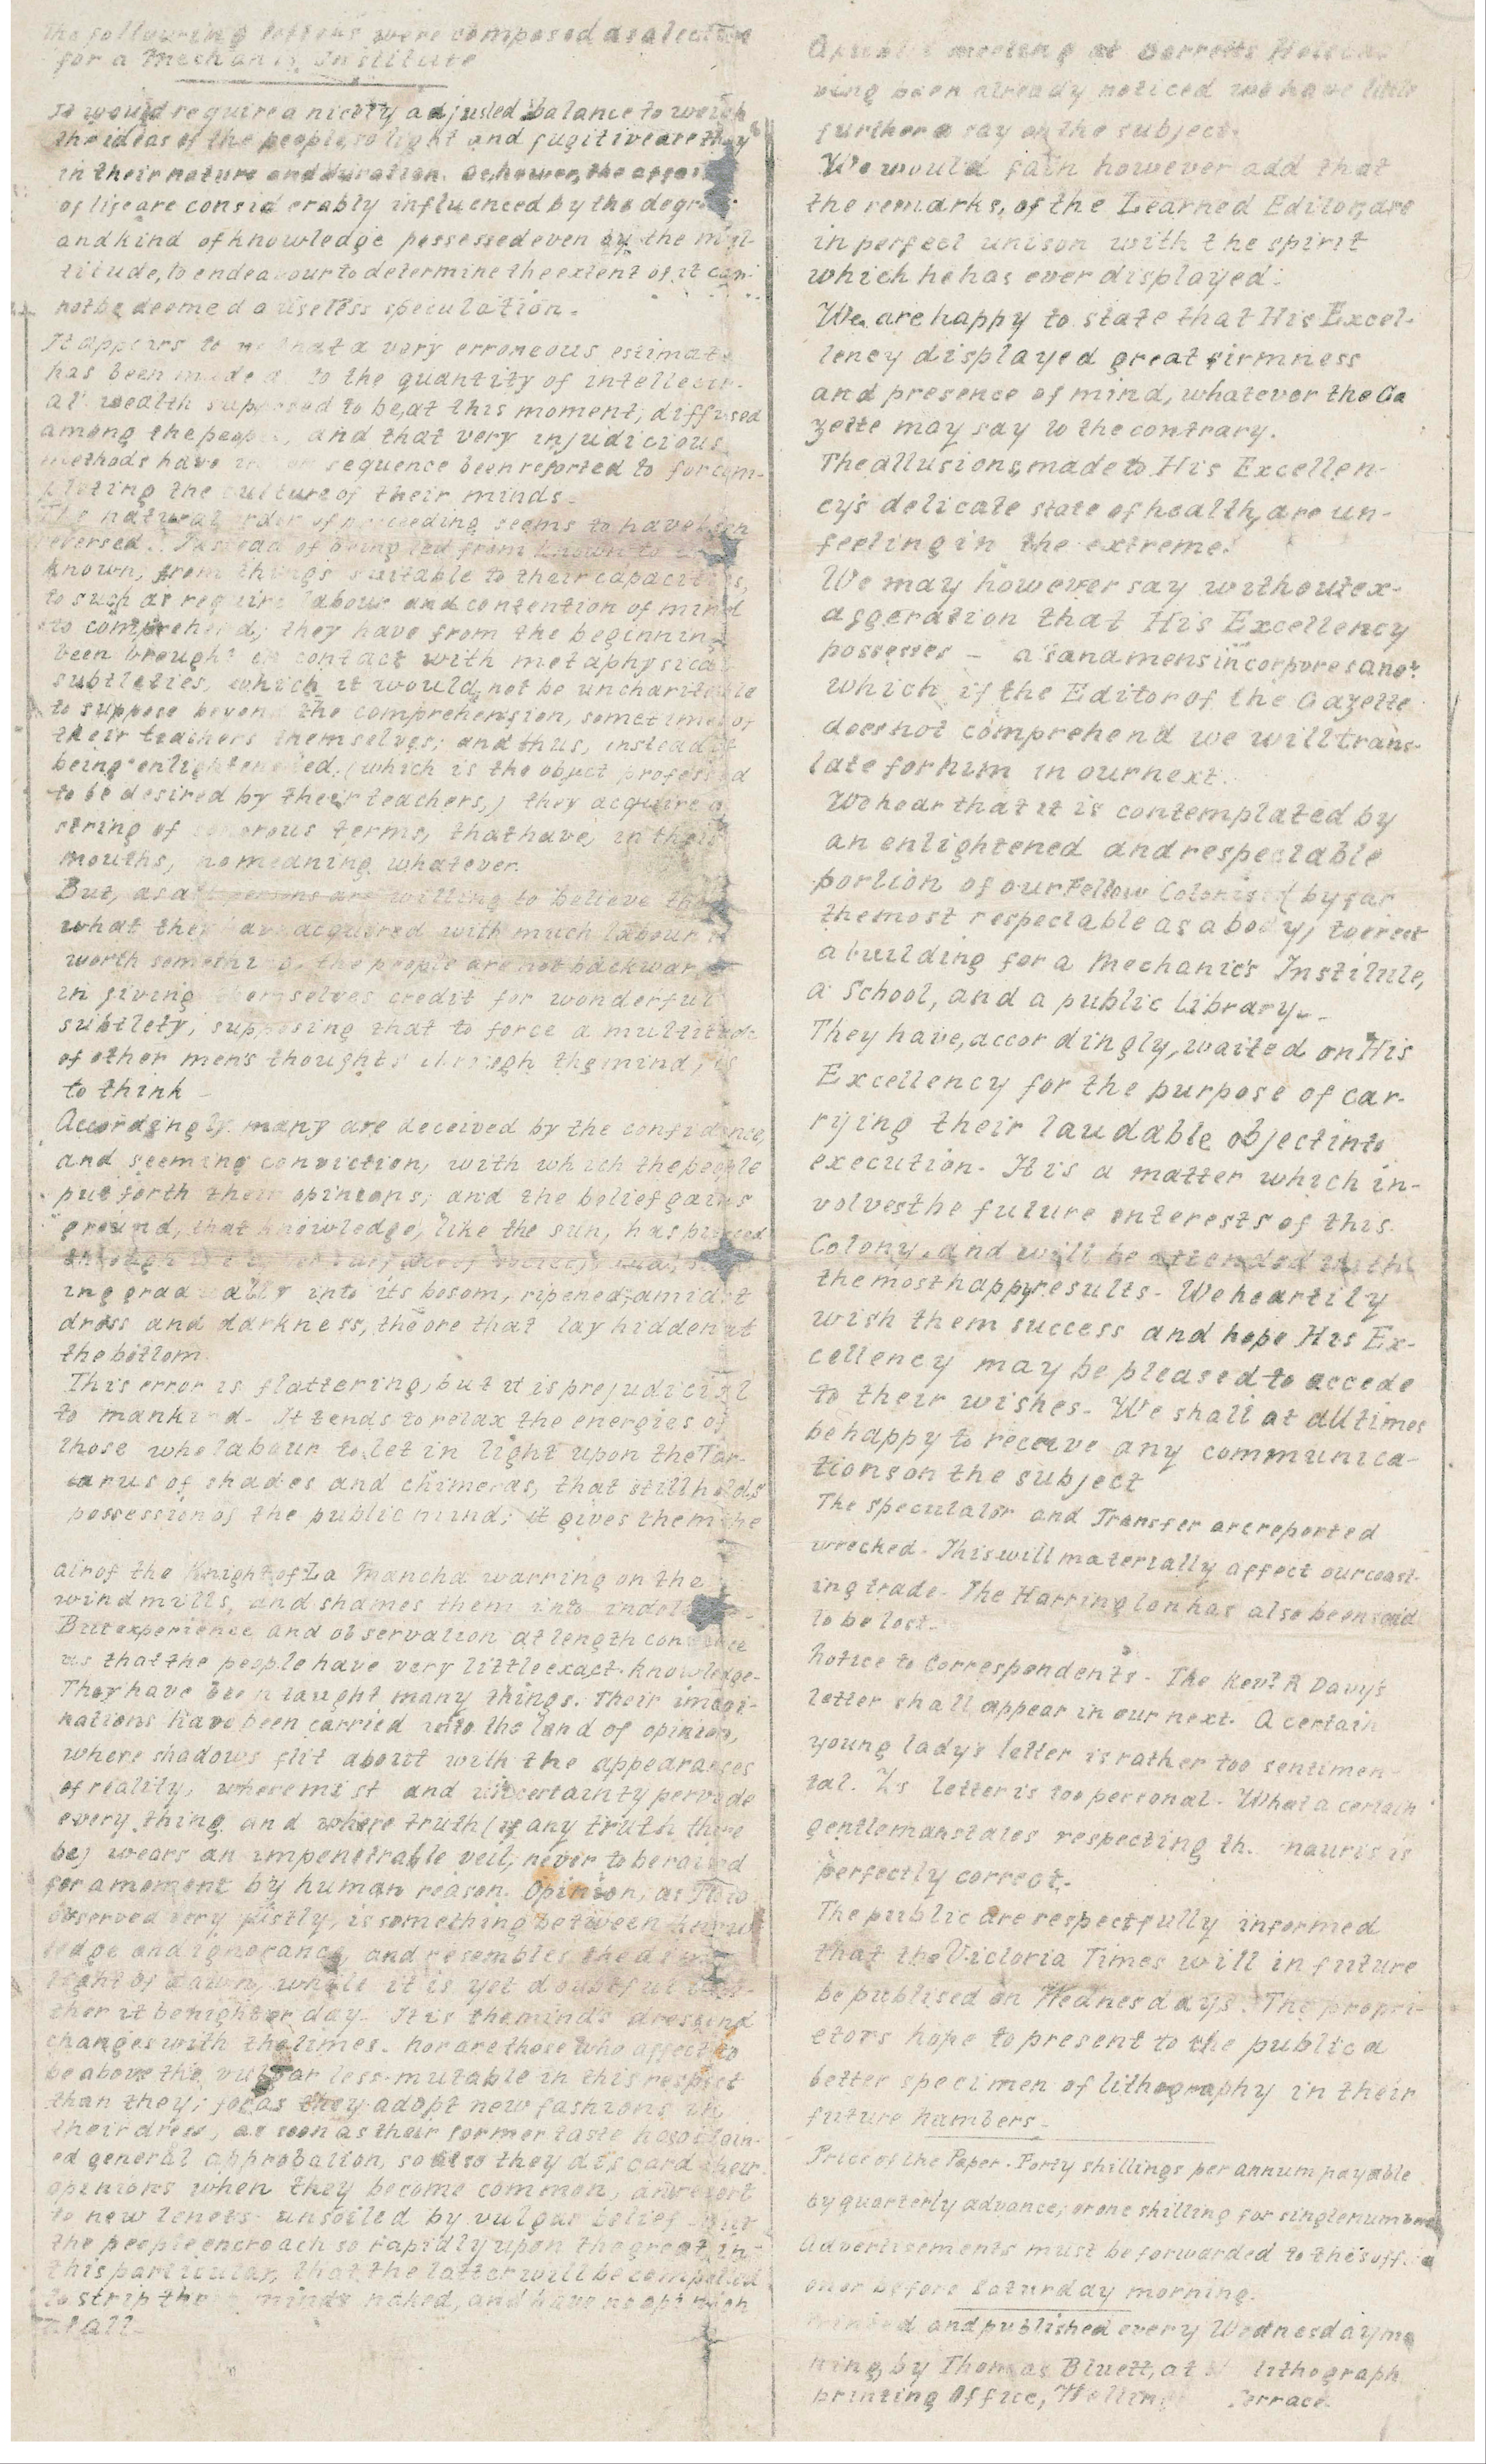 The following letters were composed as a lecture
for a Mechanic's Institute
It would require a nicety adjusted balance to weigh
the ideas of the people, so light and fugitive are they
in their nature and duration. As, however, the affairs
of life are considerably influenced by the degree
and kind of knowledge possessed even by the mul-
titude, to endeavour to determine the extent of it can-
not be deemed a useless speculation.
It appears to me that a very erroneous estimate
has been made as to the quantity of intellectu-
al wealth supposed to be, at this moment, diffused
among the people, and that very injudicious
methods have in consequence been resorted to for com-
pleting the culture of their minds.
The natural order of proceeding seems to have been
reversed. Instead of being led from known to un-
known, from things suitable to their capacities,
to such as require labour and contention of mind
to comprehend; they have from the beginning
been brought in contact with metaphysical
subtleties, which it would, not be uncharitable
to suppose beyond the comprehension, sometimes of
their teachers themselves; and thus, instead of
being enlightened. (which is the object professed
to be desired by their teachers,) they acquire a
string of sonorous terms, that have, in their
mouths, no meaning whatever.
But, as all persons are willing to believe that
what they have acquired with much labour is
worth something, the people are not backward
in giving themselves credit for wonderful
subtlety, supposing that to force a multitude
of other men's thoughts through the mind, is
to think
Accordingly many are deceived by the confidence,
and seeming conviction, with which the people
put forth their opinions; and the belief gains
ground, that knowledge, like the sun, has pierced
through the surface of society, and,
ing gradually into its bosom, ripened, amidst
dross and darkness, the ore that lay hidden at
the bottom.
This error is flattering, but it is prejudicial
to mankind. It tends to relax the energies of
those who labour to let in light upon the Tar-
tarus of shades and chimeras, that still holds
possession of the public mind; it gives them the
air of the Knight of La Mancha warring on the
windmills, and shames them into indolence.
But experience and observation at length convince
us that the people have very little exact knowledge.
They have been taught many things. Their imagi-
nations have been carried into the land of opinion,
where shadows flit about with the appearances
of reality, where mist and uncertainty pervade
every thing and where truth (if any truth there
be) wears an impenetrable veil, never to be raised
for a moment by human reason. Opinion, as
observed very justly, is something between know-
ledge and ignorance, and resembles the dim
light of dawn, while it is yet doubtful whe-
ther it be night or day. It is the mind's dress and
changes with the times. Nor are those who affect to
be above the vulgar less mutable in this respect
than they; for as they adopt new fashions in
their dress, as soon as their former taste has obtain-
ed general approbation, so also they discard their
opinions when they become common, and resort
to new tenets unsoiled by vulgar belief. But
the people encroach so rapidly upon the great, in
this particular, that the latter will be compelled
to strip their minds naked, and have no opinion
at all.
A public meeting at Barretts Hotel ha-
ving been already noticed we have little
further to say on the subject.
We would fain however add that
the remarks, of the Learned Editor, are
in perfect unison with the spirit
which he has ever displayed.
We are happy to state that His Excel-
lency displayed great firmness
and presence of mind, whatever the Ga
zette may say to the contrary.
The allusions, made to His Excellen-
cy's delicate state of health, are un-
feeling in the extreme.
We may however say without ex-
aggeration that His Excellency
possesses - a "sana mens in corpore sano"
which if the Editor of the Gazette
does not comprehend we will trans-
late for him in our next.
We hear that it is contemplated by
an enlightened and respectable
portion of our Fellow Colonists (by far
the most respectable as a body) to erect
a building for a Mechanic's Institute,
a School, and a public library.
They have, accordingly, waited on His
Excellency for the purpose of car-
rying their laudable object into
execution. It is a matter which in-
volves the future interests of this
Colony, and will be attended with
the most happy results. We heartily
wish them success and hope His Ex-
cellency may be pleased to accede
to their wishes. We shall at all times
be happy to receive any communica-
tions on the subject
The Speculator and Transfer are reported
wrecked. This will materially affect our coast-
ing trade. The Harrington has also been said
to be lost.
Notice to Correspondents. The Revd. R Davy's
letter shall appear in our next. A certain
young lady's letter is rather too sentimen-
tal. Z's letter is too personal. What a certain
gentleman states respecting th. is
perfectly correct.
The public are respectfully informed
that the Victoria Times will in future
be publised on Wednesdays. The propri-
etors hope to present to the public a
better specimen of lithography in their
future numbers.
Price of the Paper. Forty shillings per annum payable
by quarterly advance; or one shilling for single numbers
Advertisements must be forwarded to the office
on or before Saturday morning.
Printed and published every Wednesday mo
ning, by Thomas Bluett, at lithograph
printing Office, Terrace.